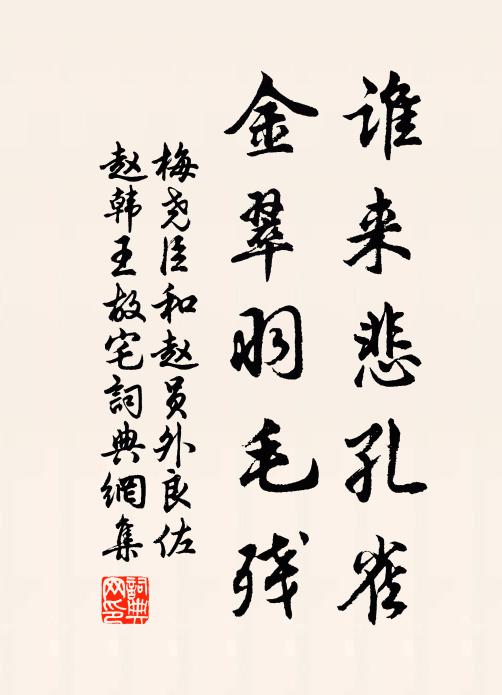 谁来悲孔雀
金翠羽毛残
梅尧臣和赵员外良佐
赵韩王故宅词典網集
詞典網印